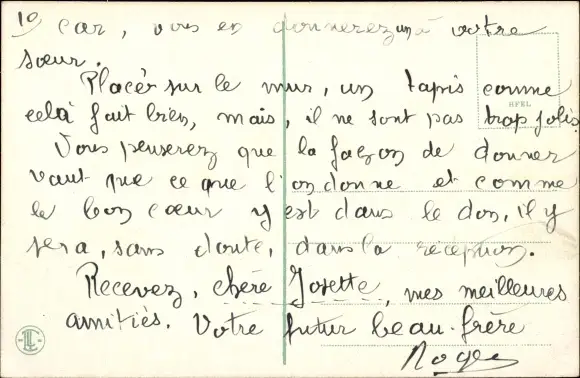 10
car, vous en donnerez un à votre
sœur.
Placés sur le mur, un tapis comme
celà fait bien, mais, il ne sont pas trop jolis
Vous penserez que la façon de donner
vaut que ce que l'on donne et comme
le bon cœur y est dans le don, il y
sera, sans doute, dans la réception.
Recevez, chère Josette, mes meilleures
amitiés. Votre futur beau-frère
Roger